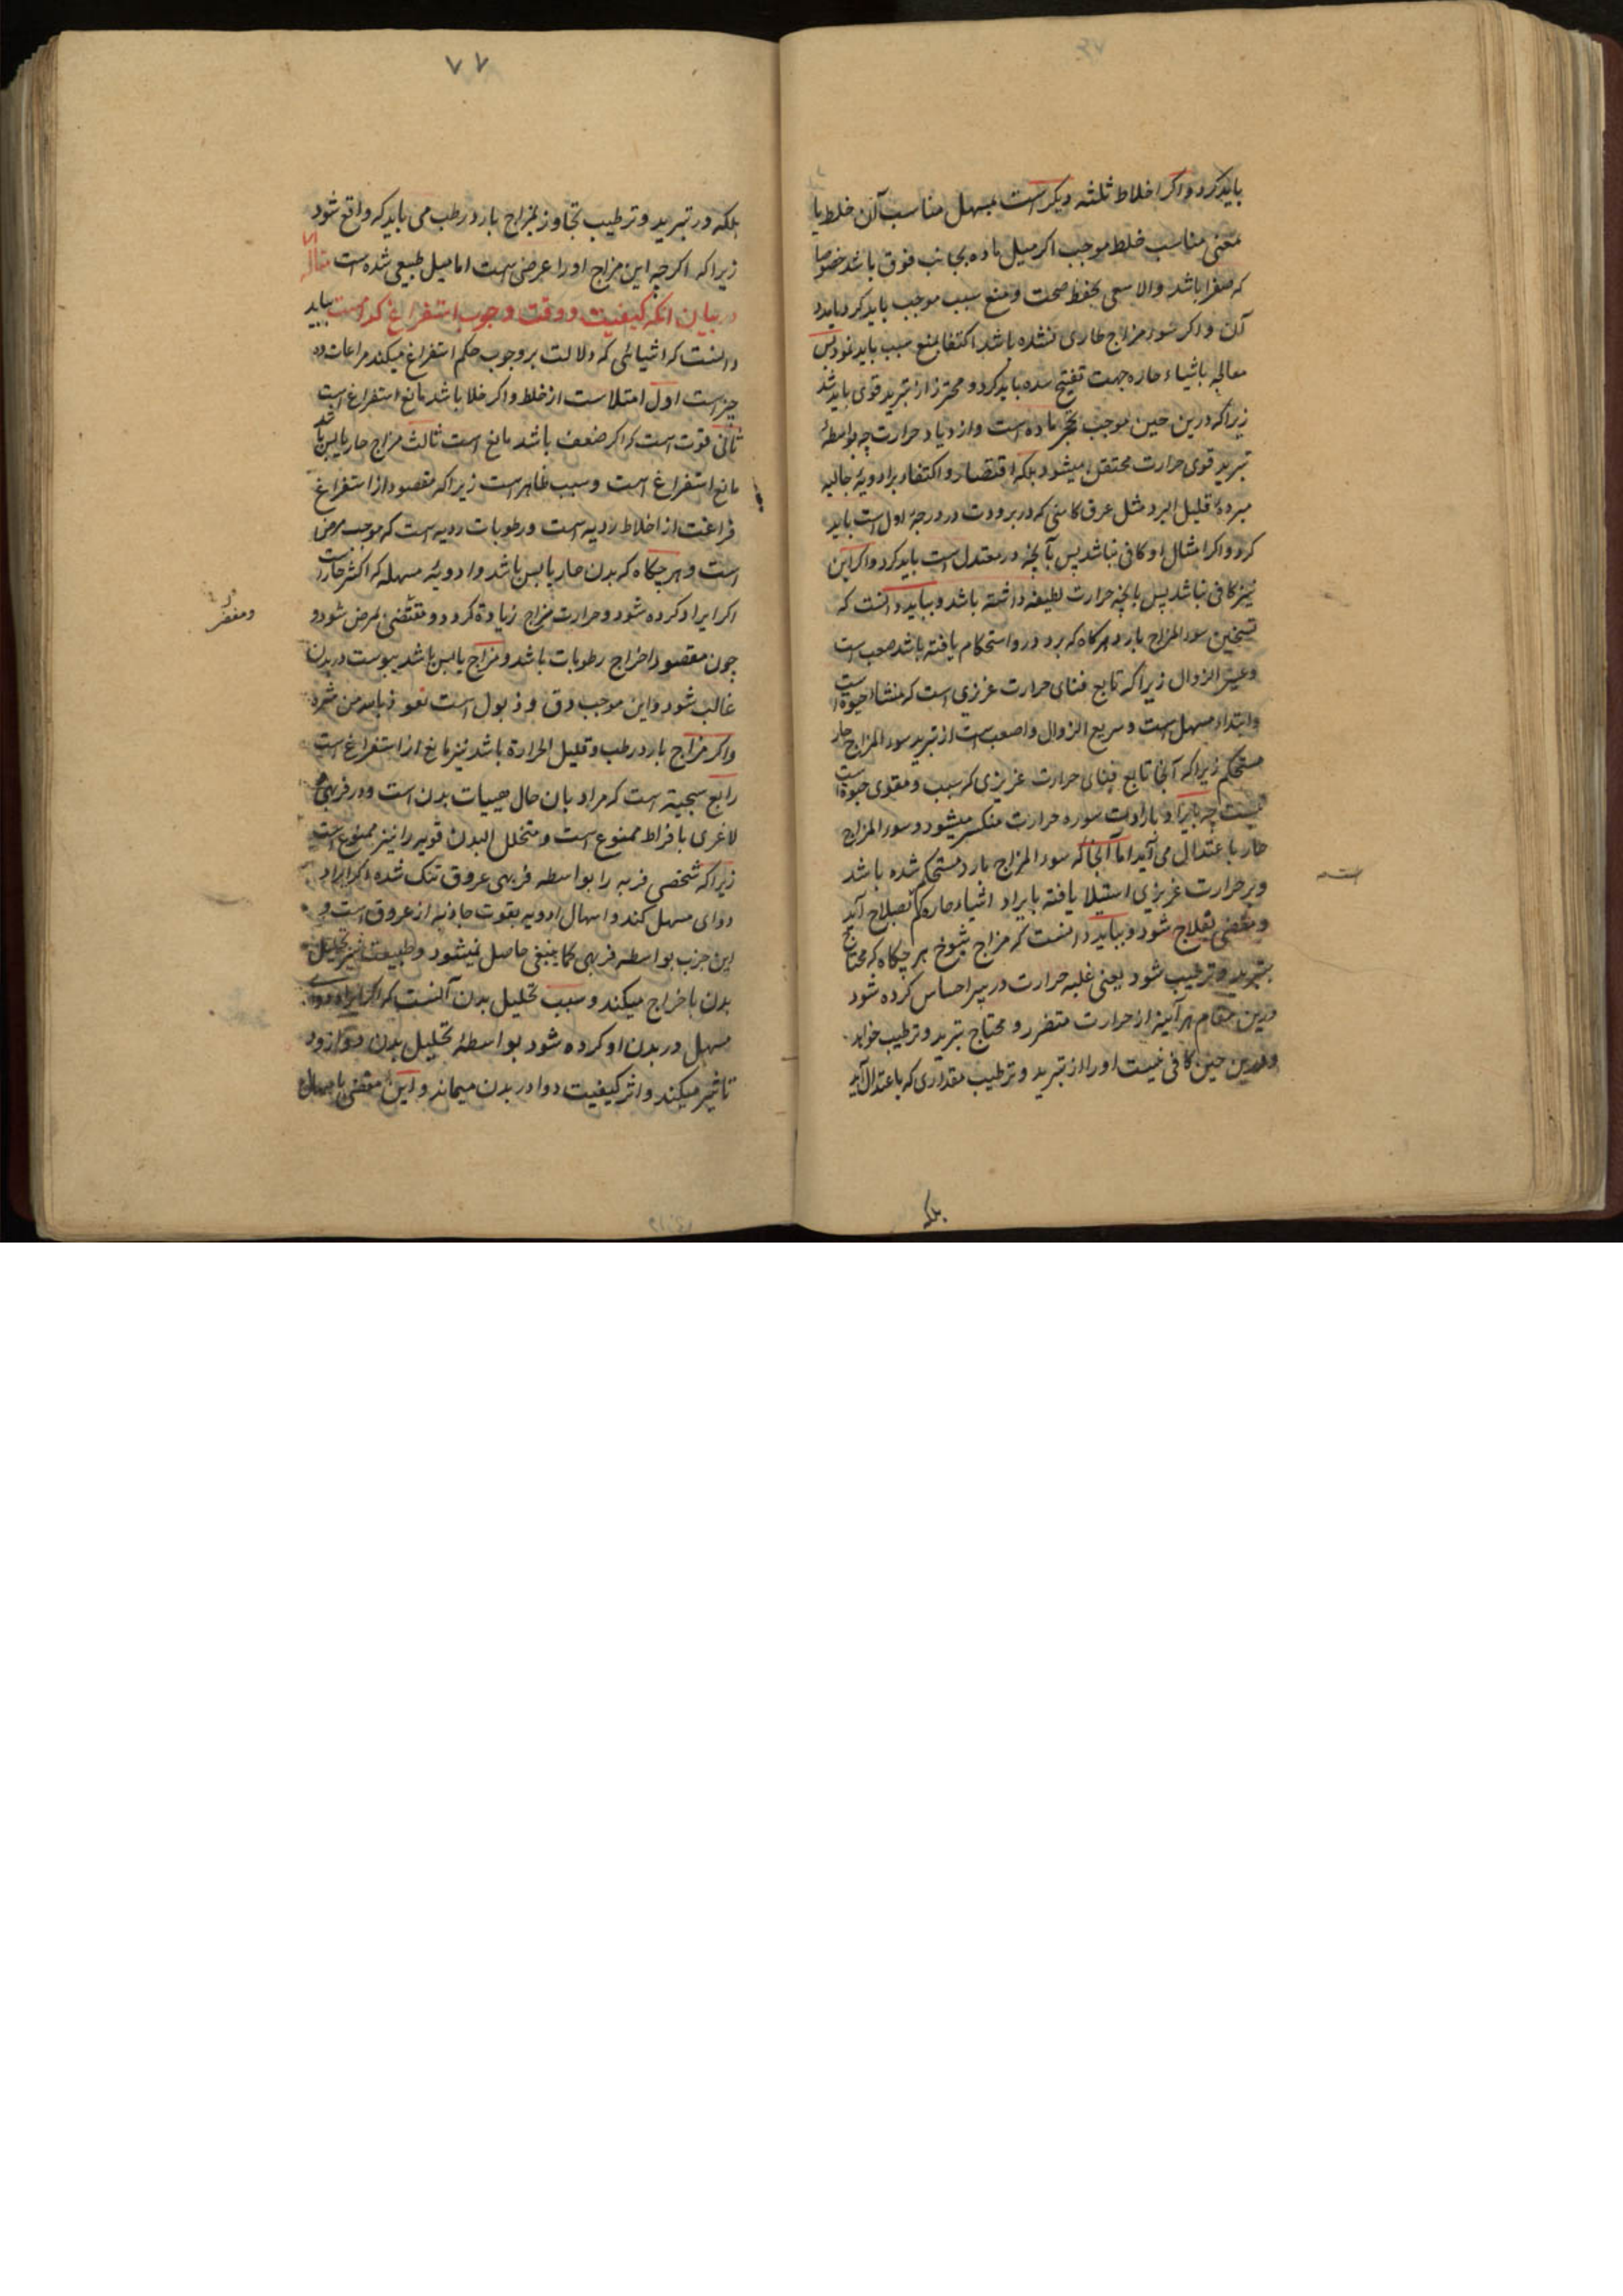 باید کرد و اکر اخلاط ثلثه دیکر است بمسهل مناسب آن خلط یا
معنی مناسب خلط موجب اکر میل ماده بجانب فوق باشد خصوصا
که صفرا باشد والا سعی بحفظ صحت و منع سبب موجب باید کرد
آن و اکر سوء مزاج طاری نشده باشد اکتفا بمنع سبب باید نمود پس
معالجه باشیاء حاره جهت تفتیح سده باید کرد و محترز از تبرید قوی باید شد
زیراکه درین حین موجب تحجر ماده است و ازدیاد حرارت چه بواسطهٔ
تبرید قوی حرارت محتقن میشود بلکه اقتصار و اکتفا بر ادویهٔ جالیه
مبردهٔ قلیل البرد مثل عرق کاسنی که در برودت در درجهٔ اول است باید
کرد و اکر امثال او کافی نباشد پس بآنچه در معتدل است باید کرد و اکر این
نیز کافی نباشد پس بانچه حرارت لطیفه داشته باشد و بباید دانست که
تسخین سوء المزاج بارد هرکاه که برد درو استحکام یافته باشد صعب است
و عسر الزوال زیراکه تابع فنای حرارت غریزی است که منشاء حیوة است
و ابتداء سهل است و سریع الزوال و اصعب است از تبرید سوء المزاج حار
مستحکم زیراکه آنجا تابع فنای حرارت غریزی که سبب و مقوی حیوة است
نیست چه بایراد باردات سوره حرارت منکسر میشود و سوء المزاج
حار باعتدال می آید اما آنجا که سوء المزاج بارد مستحکم شده باشد
و بر حرارت غریزی استیلا یافته بایراد اشیاء حاره کم بصلاح آید
و مفضی بعلاج شود و بباید دانست که مزاج شیوخ هرچکاه که محتاج
بتبرید و ترطیب شود یعنی غلبه حرارت در پیر احساس کرده شود
درین مقام هرآینه از حرارت متضرر و محتاج تبرید و ترطیب خواهد
و درین حین کافی نیست او را از تبرید و ترطیب مقداری که باعتدال آید
بلکه
۷۷
بلکه در تبرید و ترطیب تجاوز بمزاج بارد رطب می باید که واقع شود
زیراکه اکرچه این مزاج او را عرضی است اما میل طبیعی شده است مقاله
در بیان آنکه کیفیت و وقت وجوب استفراغ کدام است بباید
دانست که اشیائی که دلالت بر وجوب حکم استفراغ میکند مراعات ده
چیز است اول امتلاست از خلط و اکر خلا باشد مانع استفراغ است
ثانی قوت است که اکر ضعف باشد مانع است ثالث مزاج حار یابس باشد
مانع استفراغ است و سبب ظاهر است زیراکه مقصود از استفراغ
فراغت از اخلاط ردیه است و رطوبات ردیه است که موجب مرض
است و هرچکاه که بدن حار یابس باشد و ادویهٔ مسهله که اکثر حارست
اکر ایراد کرده شود و حرارت مزاج زیادة کردد و مقتضی مرض شود و
چون مقصود اخراج رطوبات باشد و مزاج یابس باشد یبوست در بدن
غالب شود و این موجب دق و ذبول است نعوذ بالله من شره
و اکر مزاج بارد رطب و قلیل الحرارة باشد نیز مانع از استفراغ است
رابع سجیته است که مراد بان حال جبلیات بدن است و در فربهی
لاغری بافراط ممنوع است و متخلل البدن قویه را نیز ممنوع است
زیراکه شخصی فربه را بواسطه فربهی عروق تنک شده اکر ایراد
دوای مسهل کند و اسهال ادویه بقوت جاذبه از عروق است و
این جذب بواسطه فربهی کما ینبغی حاصل نمیشود و طبیعت نیز تحلیل
بدن باخراج میکند و سبب تحلیل بدن آنست که اکر ایراد دوای
مسهل در بدن او کرده شود بواسطهٔ تحلیل بدن دوا زود
تاثیر میکند و اثر کیفیت دوا در بدن میماند و این مفضی باسهال